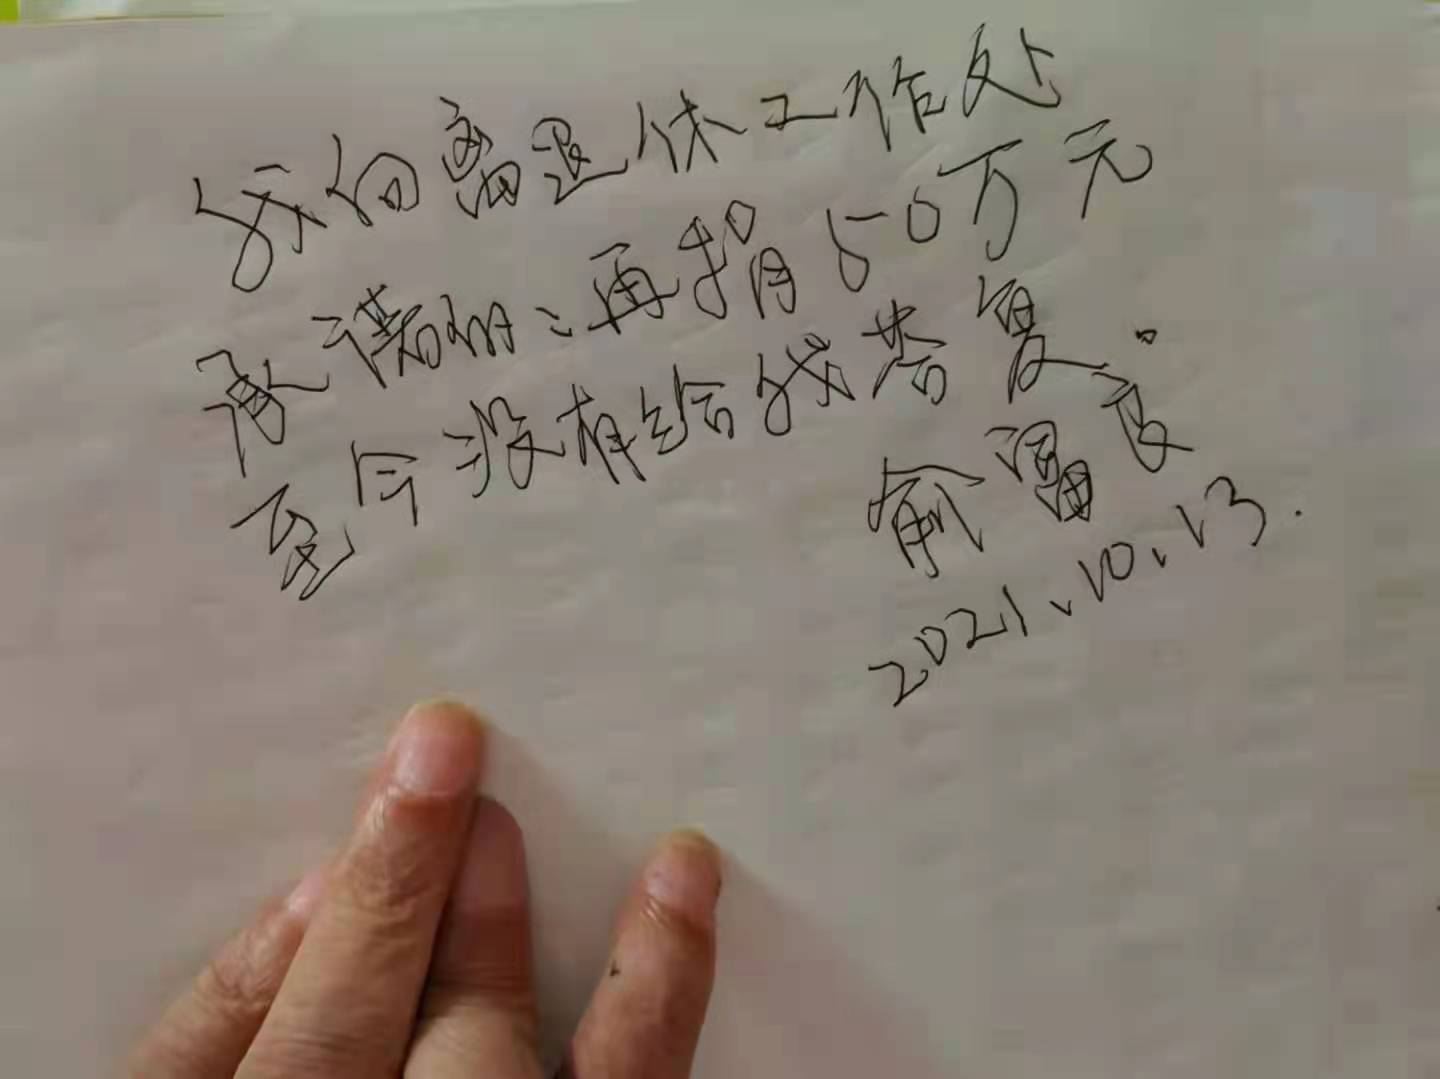 我向离退休工作处
承诺的：再捐50万元
至今没有给我答复。
俞
2021.10.13.